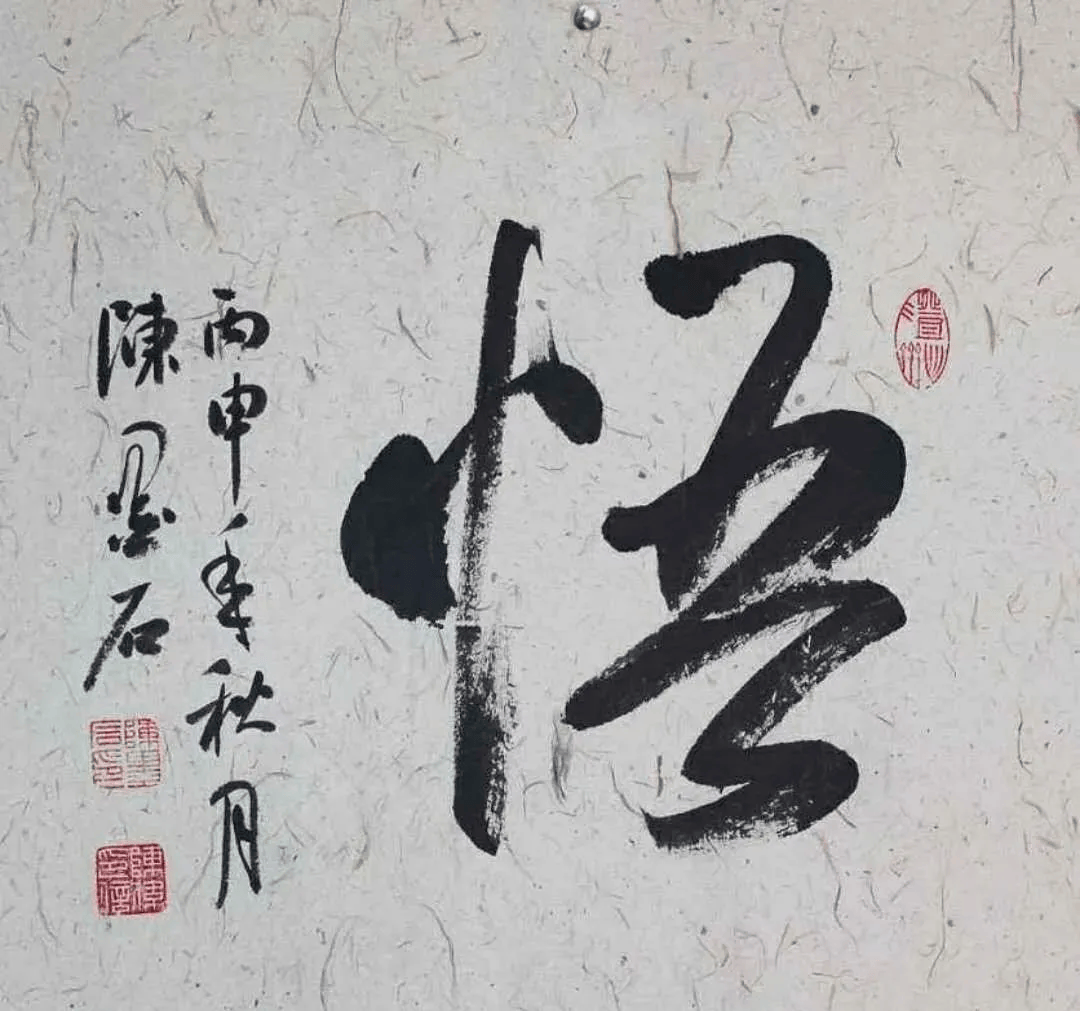 悟
丙申年秋月
陳墨石